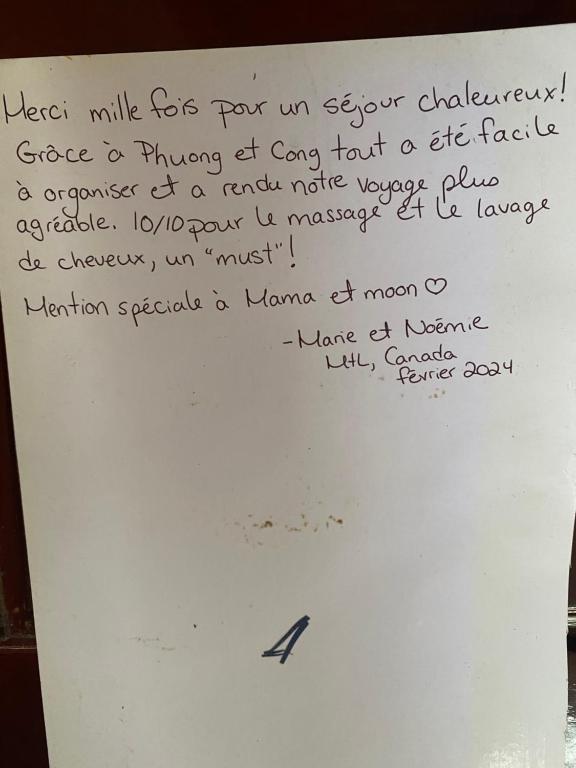 Merci mille fois pour un séjour chaleureux!
Grâce à Phuong et Cong tout a été facile
à organiser et a rendu notre voyage plus
agréable. 10/10 pour le massage et le lavage
de cheveux, un "must"!
Mention spéciale à Mama et moon ♡
-Marie et Noémie
Mtl, Canada
février 2024
4